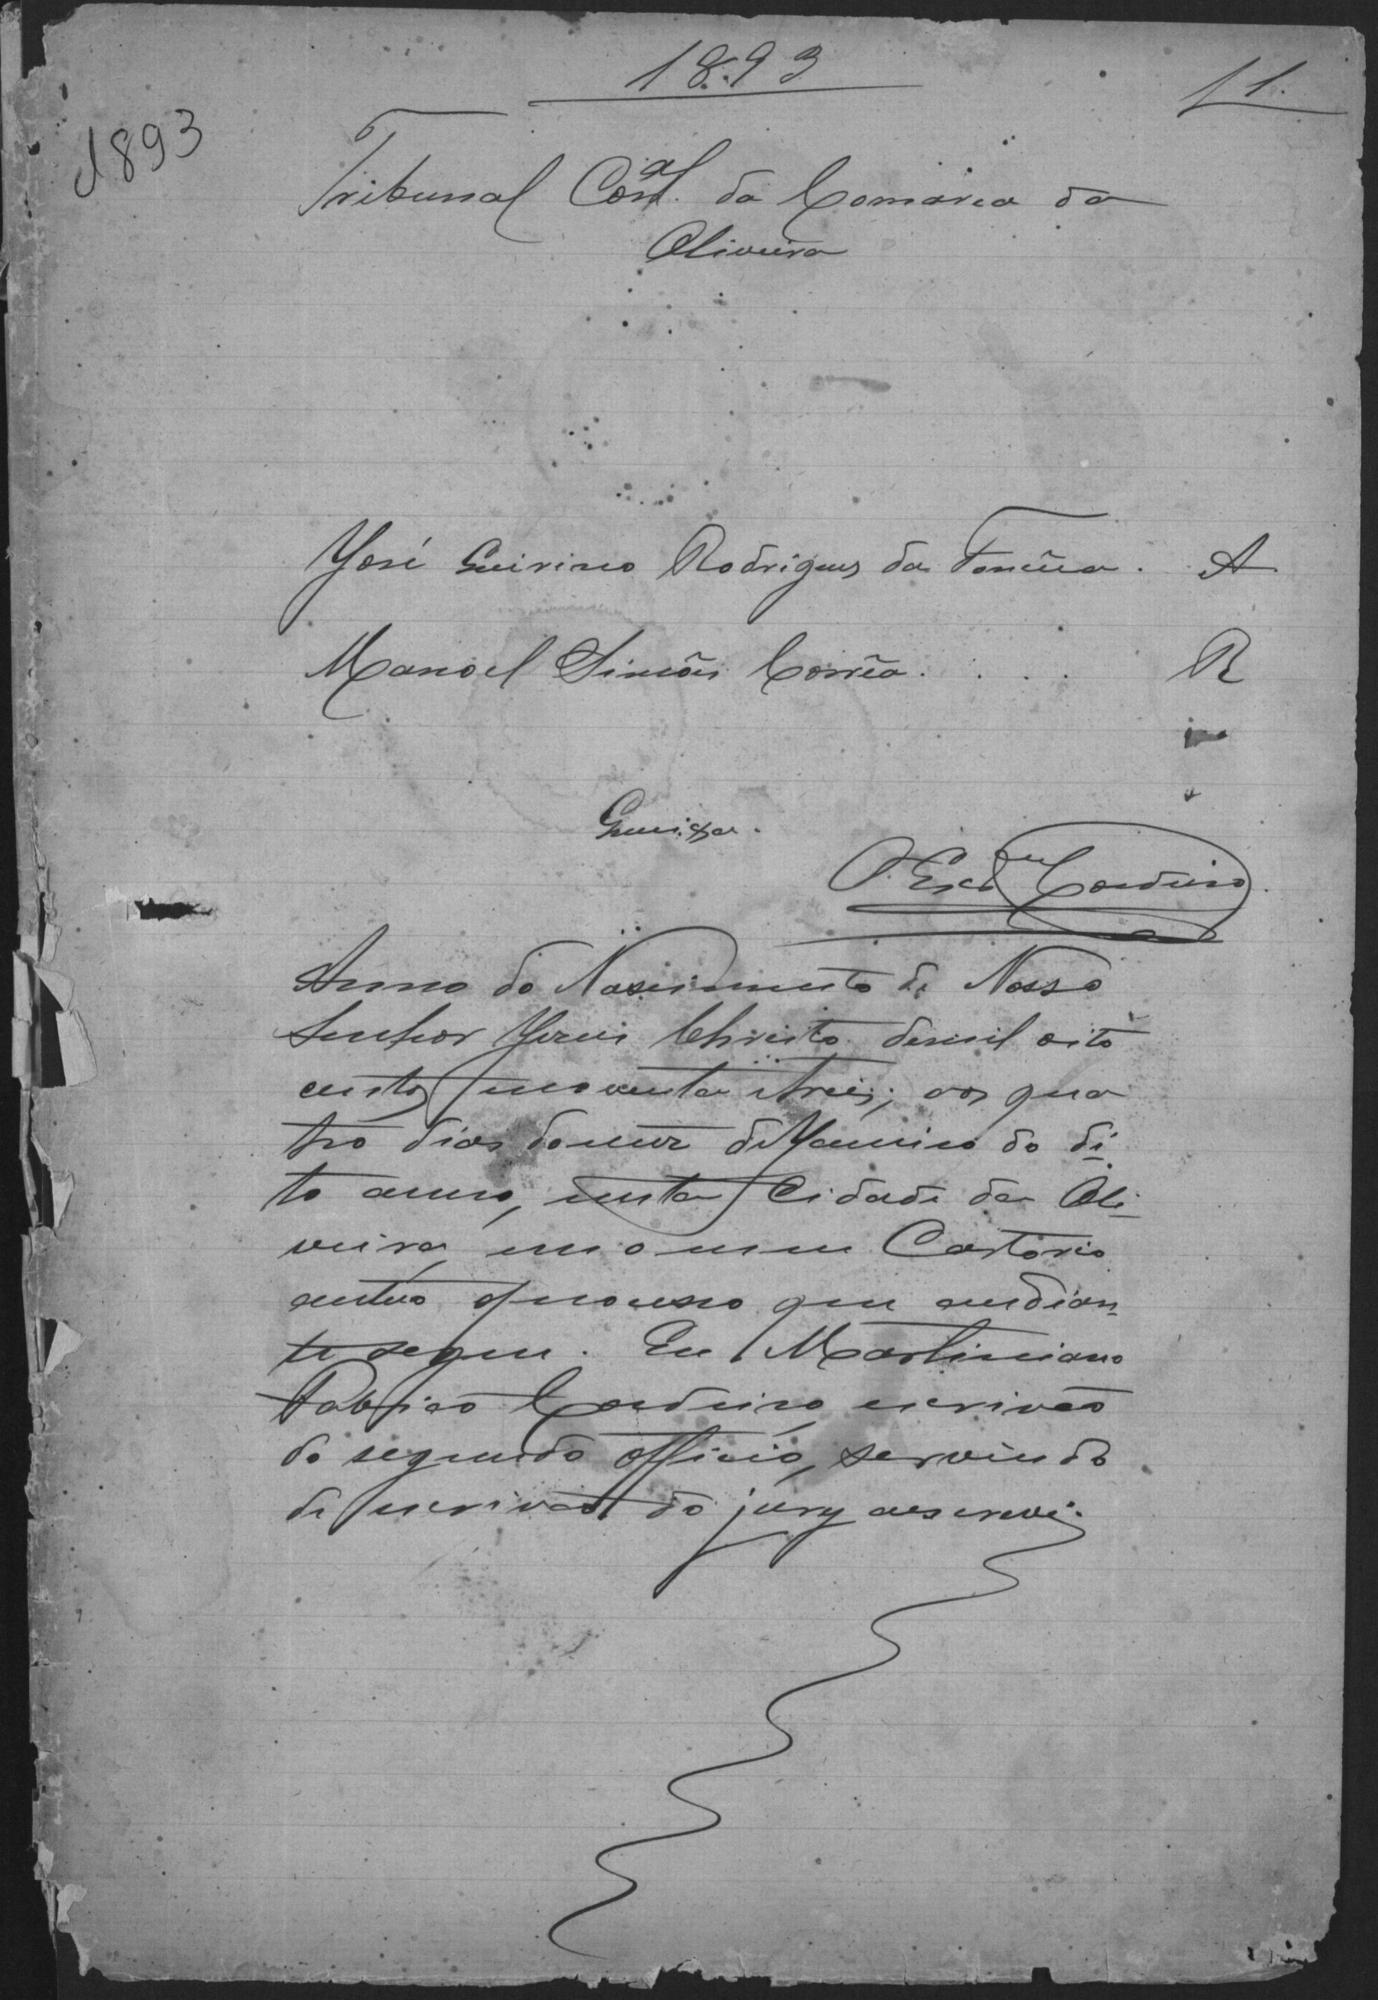 1893
f 1.
1893
Tribunal Cor.al da Comarca da
Oliveira
José Quirino Rodrigues da Fonçêca . A
Manoel Simões Corrêa . . . . R
Queixa.
O Escr.am Cordeiro
Anno do Nascimento de Nosso
Senhor Jesus Christo demil oito
centos enoventa itres, aos qua
tro dias domez de Janeiro do di-
to anno, nesta Cidade da Oli-
veira, em o meu Cartorio
autuo o processo que audian-
te segue. Eu Martiniano
Cordeiro, escrivão
do segundo officio, servindo
de escrivão do jury oescrevi.